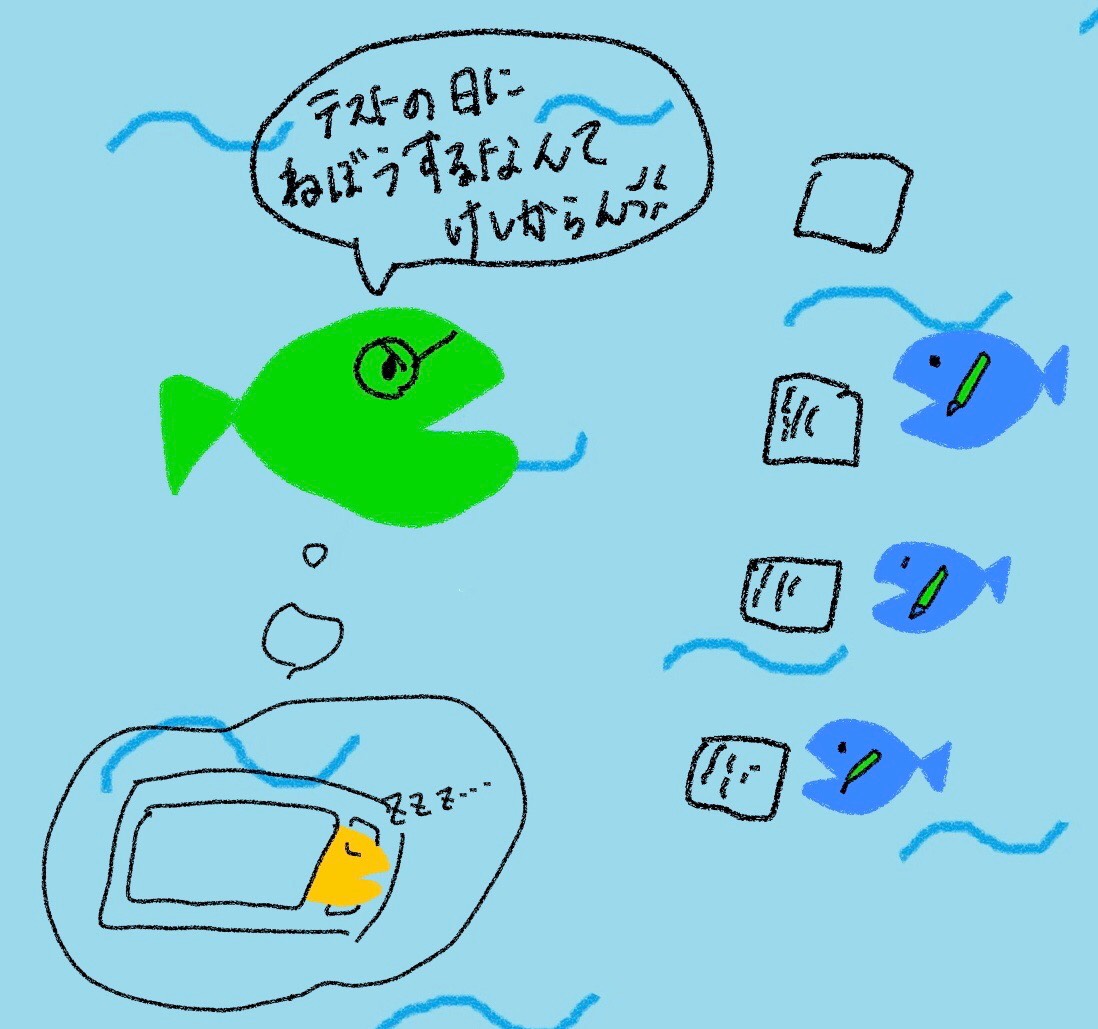 テストの日に
ねぼうするなんて
けしからん💢
zzz...